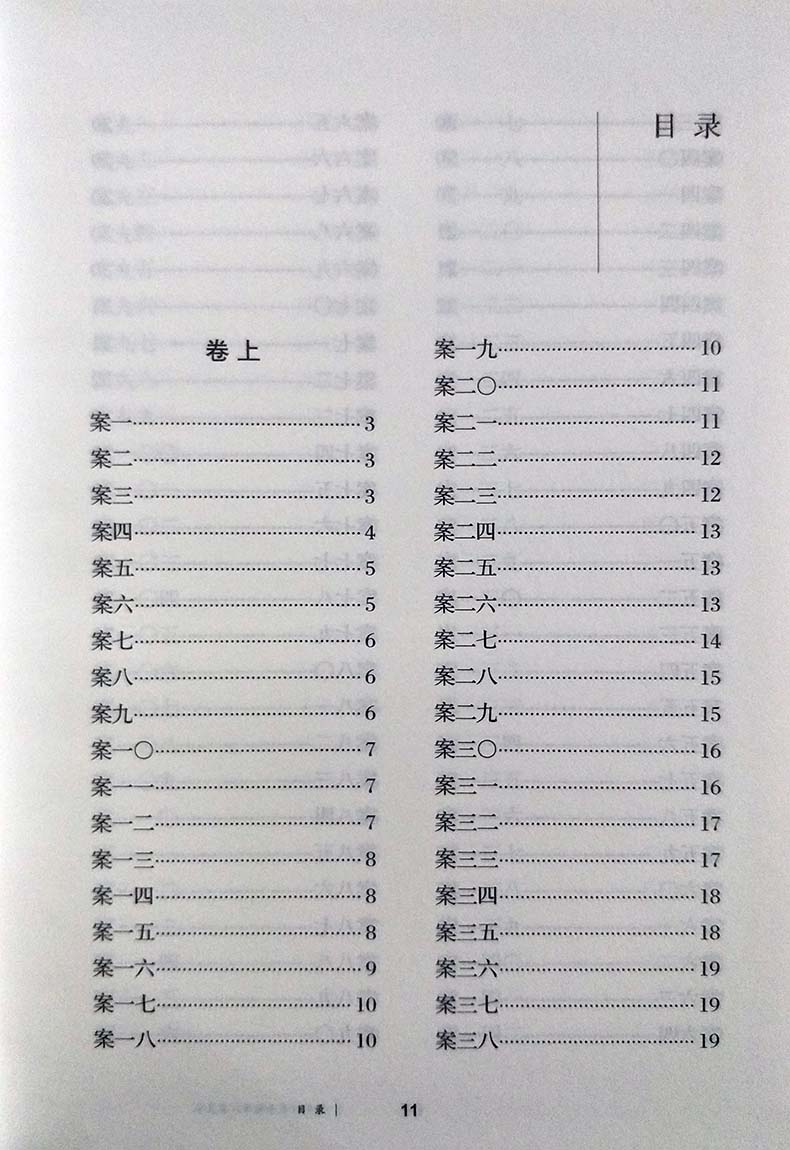 目录
卷上
案一……3
案二……3
案三……3
案四……4
案五……5
案六……5
案七……6
案八……6
案九……6
案一〇……7
案一一……7
案一二……7
案一三……8
案一四……8
案一五……8
案一六……9
案一七……10
案一八……10
案一九……10
案二〇……11
案二一……11
案二二……12
案二三……12
案二四……13
案二五……13
案二六……13
案二七……14
案二八……15
案二九……15
案三〇……16
案三一……16
案三二……17
案三三……17
案三四……18
案三五……18
案三六……19
案三七……19
案三八……19
目录 | 11